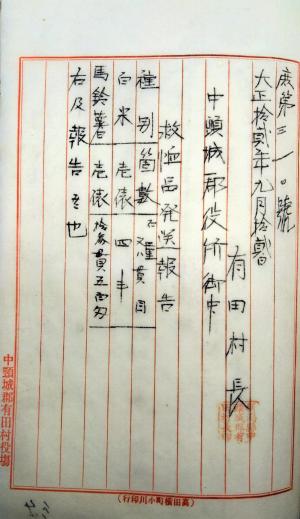 庶第三一〇號
大正拾貳年九月拾貳日
有田村長
中頸城郡役所御中
救恤品発送報告
種別 箇數 石又ハ重貫目
白米 壱俵 四斗
馬鈴薯 壱俵 拾参貫五百匁
右及報告候也
中頸城郡有田村役場
(高田横町小川印行)